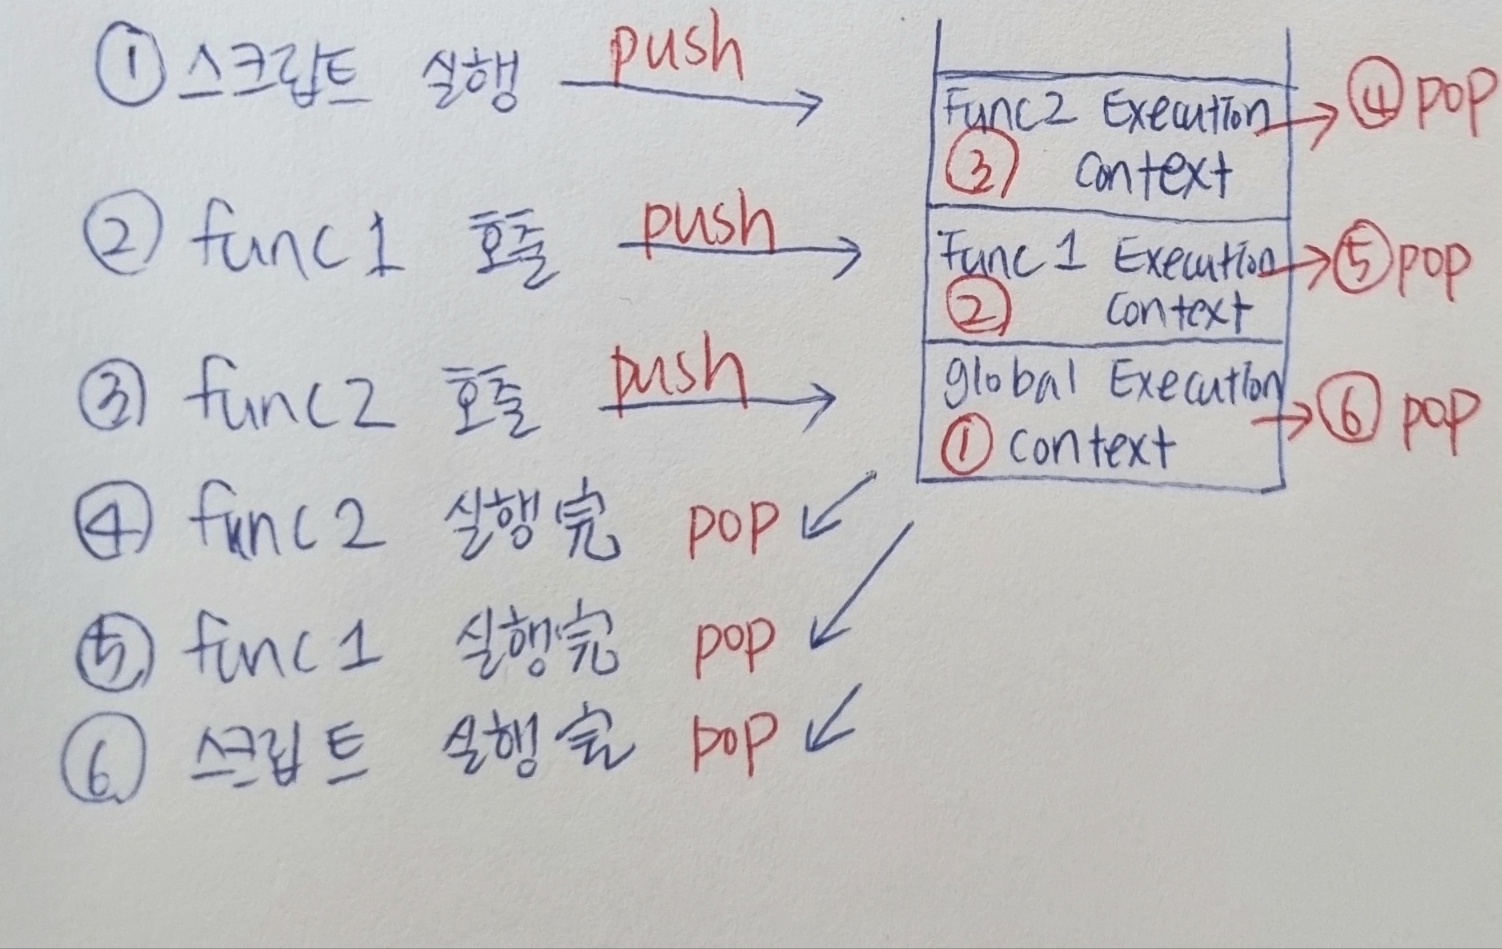 ① 스크립트 실행 push
② func1 호출 push
③ func2 호출 push
④ func2 실행完 pop
⑤ func1 실행完 pop
⑥ 스크립트 실행完 pop
Func2 Execution
③ Context
④ pop
Func1 Execution
② Context
⑤ pop
global Execution
① Context
⑥ pop